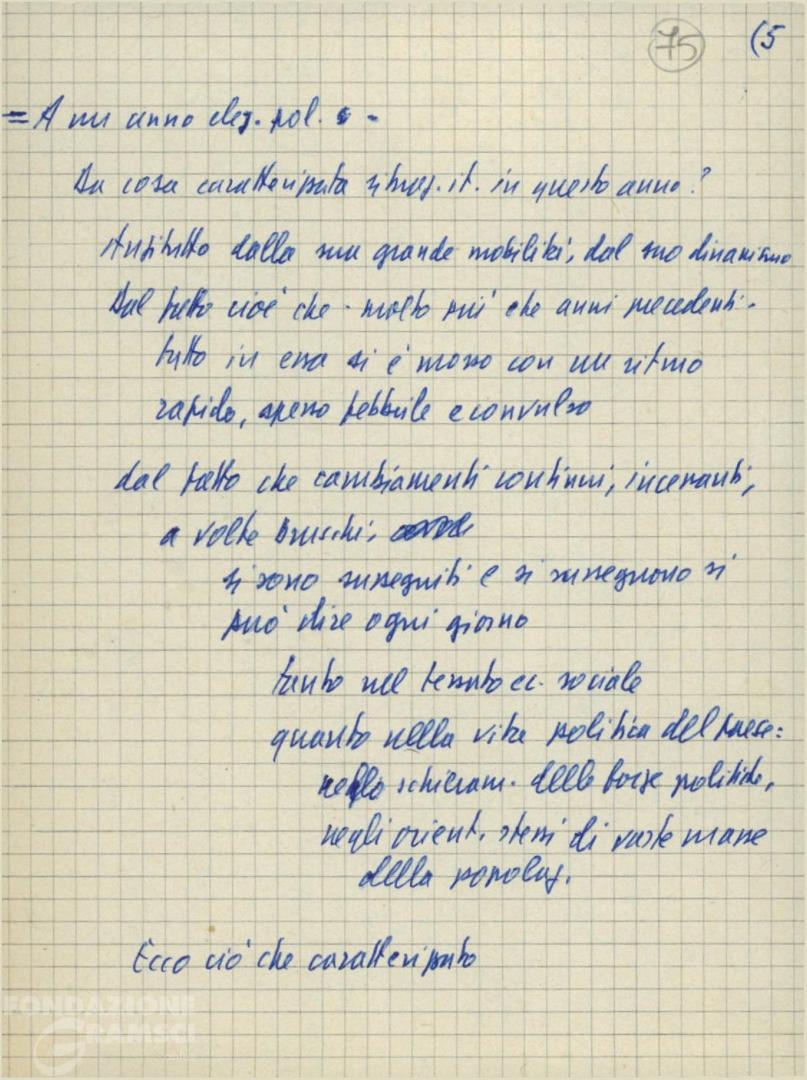 75 (5
= A un anno elez. pol. -
Da cosa caratterizzata situaz. it. in questo anno?
Anzitutto dalla sua grande mobilità, dal suo dinamismo
Dal fatto cioè che - molto più che anni precedenti -
tutto in essa si è mosso con un ritmo
rapido, spesso febbrile e convulso
dal fatto che cambiamenti continui, incessanti,
a volte bruschi,
si sono susseguiti e si susseguono si
può dire ogni giorno
tanto nel tessuto ec. sociale
quanto nella vita politica del paese:
nello schieram. delle forze politiche,
negli orient. stessi di vaste masse
della popolaz.
Ecco ciò che caratterizzato
FONDAZIONE
GRAMSCI